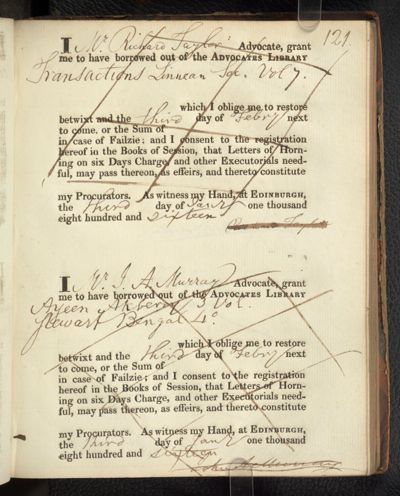 121.
I Mr. Richard Taylor Advocate, grant
me to have borrowed out of the ADVOCATES LIBRARY
Transactions Linnean Soc. Vol 7.
which I oblige me to restore
betwixt and the third day of Febry next
to come, or the Sum of
in case of Failzie; and I consent to the registration
hereof in the Books of Session, that Letters of Horn-
ing on six Days Charge, and other Executorials need-
ful, may pass thereon, as effeirs, and thereto constitute
my Procurators. As witness my Hand, at EDINBURGH,
the third day of Janry one thousand
eight hundred and sixteen
I Mr. J. A. Murray Advocate, grant
me to have borrowed out of the ADVOCATES LIBRARY
Ayeen Akberey 3 Vol.
Stewart Bengal 4o.
which I oblige me to restore
betwixt and the third day of Febry next
to come, or the Sum of
in case of Failzie; and I consent to the registration
hereof in the Books of Session, that Letters of Horn-
ing on six Days Charge, and other Executorials need-
ful, may pass thereon, as effeirs, and thereto constitute
my Procurators. As witness my Hand, at EDINBURGH,
the third day of Janry one thousand
eight hundred and sixteen